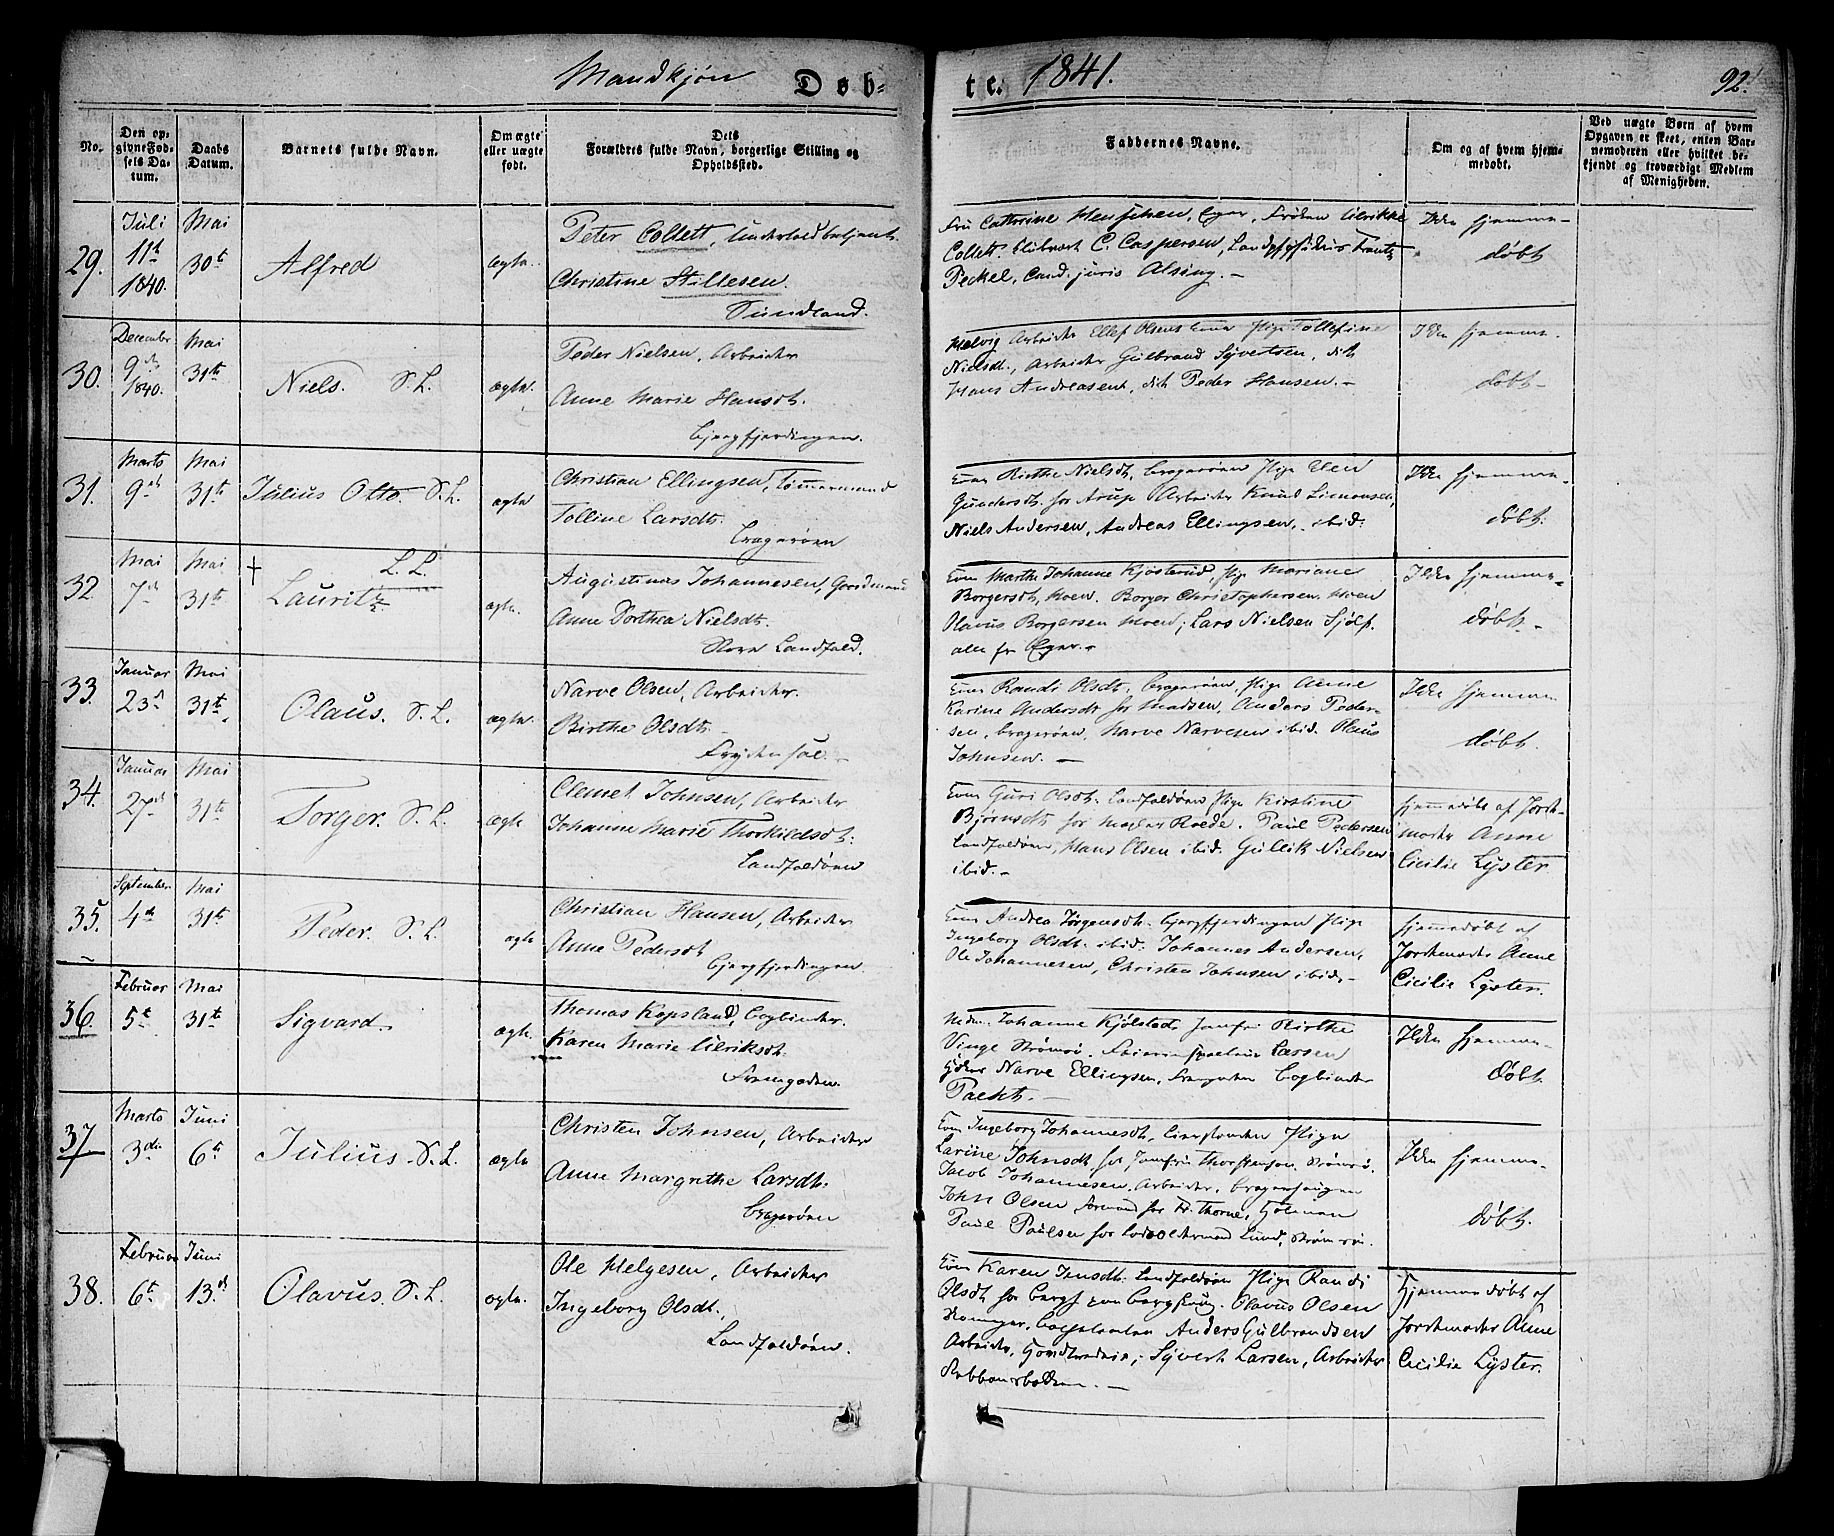 Mandkjøn Døb-
te. 1841.
92.
No.
Den op-
givne Fød-
sels Da-
tum.
Daabs
Datum.
Barnets fulde Navn.
Om ægte
eller uægte
født.
Dets
Forældres fulde Navn, borgerlige Stilling og
Opholdssted.
Faddernes Navne.
Om og af hvem hjem-
medøbt.
Ved uægte Børn af hvem
Opgaven er skeet, enten Bar-
nemoderen eller hvilket be-
kjendt og troværdigt Medlem
af Menigheden.
29.
Juli
11te
1840.
Mai
30te
Alfred
ægte.
Peter Collett,
Christine Stillesen.
Sundland.
Fru Cathrine Eger, Frøken Ulrikke
Collett. C. Caspersen,
Peckel, Cand. juris Alsing. -
Ikke hjemme-
døbt
30.
December
9de
1840.
Mai
31te
Niels. S. L.
ægte.
Peder Nielsen, Arbeider
Anne Marie Hansdt.
Bjergfjerdingen.
Arbeider Ellef Olsens Kone Pige Tollefine
Nielsdt., Arbeider Gulbrand Syvertsen, dito
Hans Andreasen, dito Peder Hansen. -
Ikke hjemme-
døbt -
31.
Marts
9de
Mai
31te
Julius Otto. S. L.
ægte
Christian Ellingsen, Tømmermand
Tolline Larsdt.
Bragerøen
Kone Birthe Nielsdt. Bragerøen Pige Elen
Gundersdt. for Arup Arbeider Knud Simonsen,
Niels Andersen, Andreas Ellingsen, ibid.
Ikke hjemme-
døbt.
32.
Mai
7de
Mai
31te
+ L. L.
Lauritz
ægte.
Augustinus Johannesen, Gaardmand
Anne Dorthea Nielsdt.
Nore Landfald.
Kone Marthe Johanne Kjøsterud, Pige Mariane
Borgersdt. Moen. Borger Christophersen Moen
Olavus Borgersen Moen; Lars Nielsen
alle fra Eger. -
Ikke hjemme-
døbt. -
33.
Januar
23de
Mai
31te
Olaus. S. L.
ægte.
Narve Olsen, Arbeider.
Birthe Olsdt. -
Frydensal. -
Kone Randi Olsdt. Bragerøen, Pige Anne
Karine Andersdt for Madsen, Anders Peder-
sen, Bragerøen, Narve Narvesen ibid. Olaus
Johnsen. -
Ikke hjemme-
døbt.
34.
Januar
27de
Mai
31te
Torger. S. L.
ægte
Clemet Johnsen, Arbeider
Johanne Marie Thorkildsdt.
Landfaldøen
Kone Guri Olsdt. Landfaldøen Pige Kirstine
Bjørnsdt for Roede. Paul Pedersen
Landfaldøen, Hans Olsen ibid. Gullik Nielsen
ibid. -
hjemmedøbt af Jord-
moder Anne
Cicilie Lyster
35.
September
4de
Mai
31te
Peder. S. L.
ægte
Christian Hansen, Arbeider
Anne Pedersdt
Bjergfjerdingen
Kone Andrea Jørgensdt. Bjergfjerdingen Pige
Ingeborg Olsdt. ibid. Johannes Andersen,
Ole Johannesen, Christen Johnsen ibid. -
hjemmedøbt af
Jordemoder Anne
Cicilie Lyster.
36.
Februar
5te
Mai
31te
Sigvard.
ægte.
Thomas Kopsland, Bogbinder.
Karen Marie Ulriksdt.
Fremgaden.
Johanne Kjølstad, Jomfru Birthe
Vinge Strømsø. Larsen
Narve Ellingsen, Bogbinder
Pacht. -
Ikke hjemme-
døbt.
37
Marts
3die
Juni
6te
Julius. S. L.
ægte
Christen Johnsen, Arbeider
Anne Margrethe Larsdt.
Bragerøen
Kone Ingeborg Johannesdt, Pige
Larine Johnsdt for Jomfru Thorstensen Strømsø.
Jacob Johannesen, Arbeider,
John Olsen for Hr. Thorne,
Paul Paulsen for Lund, Strømsøe.
Ikke hjemme-
døbt.
38.
Februar
6te
Juni
13de
Olavus. S. L.
ægte.
Ole Helgesen, Arbeider
Ingeborg Olsdt.
Landfaldøen.
Kone Karen Jensdt. Landfaldøen Pige Randi
Olsdt for Olavus Olsen
Anders Gulbrandsen
Arbeider, Syvert Larsen, Arbeider
-
hjemmedøbt af
Jordemoder Anne
Cicilie Lyster.